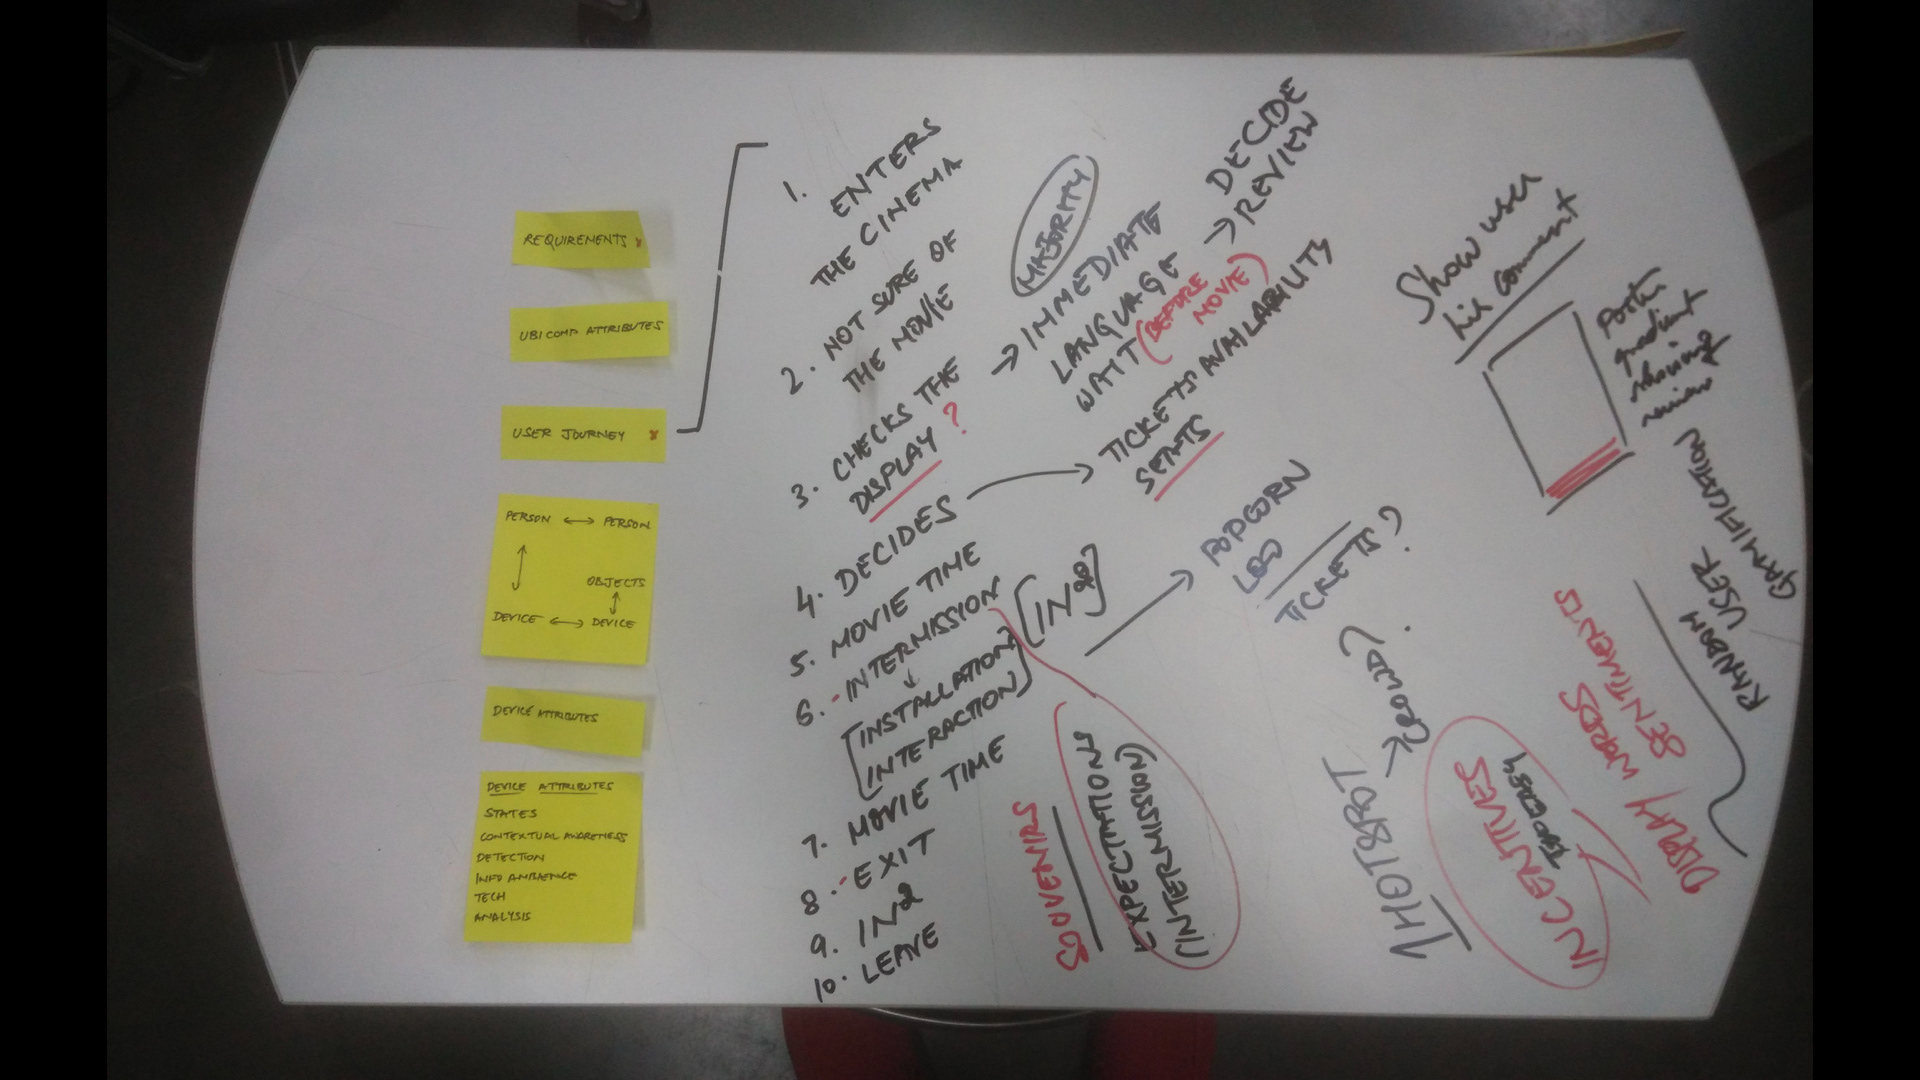 REQUIREMENTS x
UBICOMP ATTRIBUTES
USER JOURNEY x
PERSON ↔ PERSON
OBJECTS
DEVICE ↔ DEVICE
DEVICE ATTRIBUTES
DEVICE ATTRIBUTES
STATES
CONTEXTUAL AWARENESS
DETECTION
INFO AMBIENCE
TECH
ANALYSIS
1. ENTERS
THE CINEMA
2. NOT SURE OF
THE MOVIE
3. CHECKS THE
DISPLAY ?
4. DECIDES
5. MOVIE TIME
6. - INTERMISSION
[INSTALLATION
INTERACTION]
[IN2]
7. MOVIE TIME
8. - EXIT
9. IN2
10. LEAVE
MAJORITY
→ IMMEDIATE
LANGUAGE
WAIT (BEFORE
MOVIE)
DECIDE
→ REVIEW
TICKETS AVAILABILITY
SEATS
POPCORN
TICKETS?
SOUVENIRS
EXPECTATIONS
(INTERMISSION)
Show user
his comment
Poster
gradient
showing
review
GAMIFICATION
RANDOM USER
DISPLAY WORDS
SENTIMENTS
HOTSPOT
CROWD?
INCENTIVES
TOO EASY